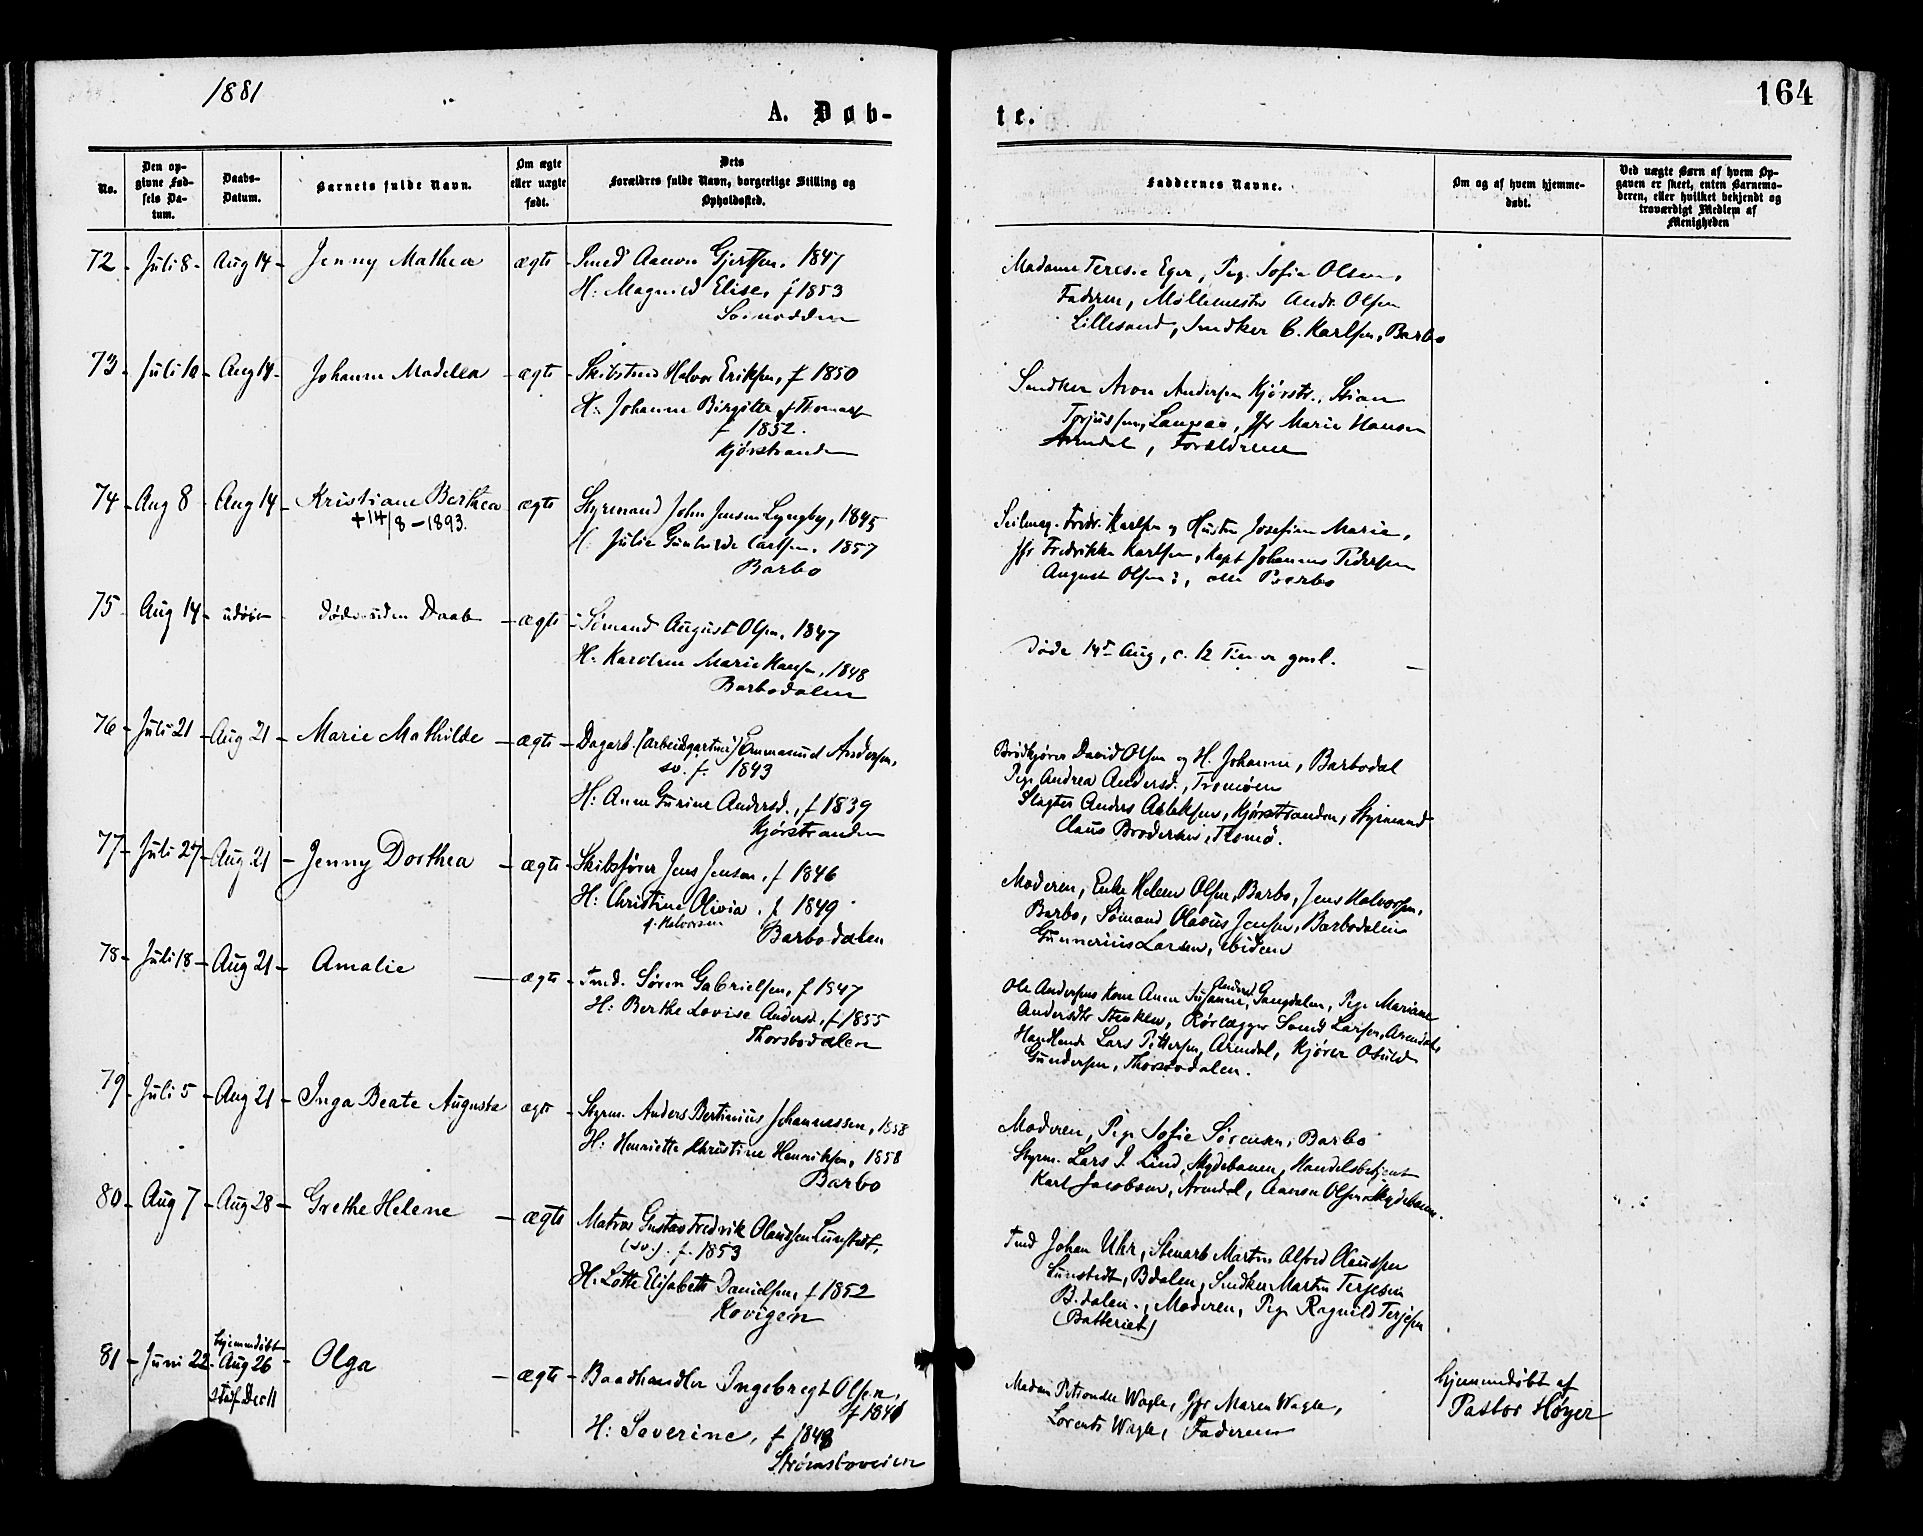 1881
164
A. Døb-
te.
No.
Den op-
givne Fød-
sels Da-
tum.
Daabs-
Datum.
Barnets fulde Navn.
Om ægte
eller uægte
født.
Dets
Forældres fulde Navn, borgerlige Stilling og
Opholdssted.
Faddernes Navne.
Om og af hvem hjemme-
døbt.
Ved uægte Børn af hvem Op-
gaven er skeet, enten Barnemo-
deren, eller hvilket bekjendt og
troværdigt Medlem af
Menigheden
72 Juli 8 Aug 14 Jenny Mathea ægte Smed Aanon Gjertsen. 1847
H: Magnild Elise, f 1853
Madame Teresie Eger, Pig. Sofie Olsen,
Faderen, Møllemester Andr. Olsen
Lillesand, Snedker C. Karlsen, Barbo
73 Juli 10 Aug 14 Johanne Madella ægte Halvor Eriksen, f 1850
H: Johanne Birgitte f Thomas
f 1852.
Kjørstranden
Snedker Aron Andersen Kjørstr., Stian
Torjussen, Langsae, Jfr Marie Hansen
Arendal, Forældrene
74 Aug 8 Aug 14 Kristiane Berthea ægte Styrmand John Jensen Lyngby, 1845
+ 14/8 - 1893.
H: Julie Carlsen. 1857
Barbo
Seilmag. Fredr. Karlsen og Hustru Josefine Marie,
Jfr Fredrikke Karlsen, Kapt Johannes Pedersen
August Olsen, alle Barbo
75 Aug 14 udøbt døde uden Daab ægte Sømand August Olsen, 1847
H: Karoline Marie Hansen, 1848
Barbodalen
Døde 14de Aug, c. 12 Timer gml.
76 Juli 21 Aug 21 Marie Mathilde ægte Dagarb. (Arbeidsgartner) Emmanuel Andersen,
sv. f. 1843
H: Anne Gurine Andersd., f 1839
Kjørstranden
Brødkjører David Olsen og H. Johanne, Barbodal
Pige Andrea Andersd., Tromøen
Slagter Anders Aslaksen, Kjørstranden, Styrmand
Claus Brodersen, Tromø.
77 Juli 27 Aug 21 Jenny Dorthea ægte Skibsfører Jens Jensen, f 1846
H: Christine Olivia, f 1849
f. Halvorsen
Barbodalen
Moderen, Enke Helene Olsen, Barbo, Jens Halvorsen,
Barbo, Sømand Olavus Jensen, Barbodalen
Gunnerius Larsen, ibidem
78 Juli 18 Aug 21 Amalie ægte Søren Gabrielsen, f 1847
H: Berthe Lovise Andersd., f 1855
Thorsbodalen
Ole Andersens Kone Anne Susanne, Langdalen, Pige Mariane
Andersdtr Stenken, Rørlægger Larsen, Arendal,
Handlende Lars Pettersen, Arendal, Kjører Osuld
Gundersen, Thorsbodalen.
79 Juli 5 Aug 21 Inga Beate Augusta ægte Styrm. Anders Bertinius Johannessen, 1858
H: Henriette Christine Henriksen, 1858
Barbo
Moderen, Pige Sofie Sørensen, Barbo
Styrm. Lars J. Lind, Skydebanen, Handelsbetjent
Karl Jacobsen, Arendal, Aanon Olsen Skydebanen.
80 Aug 7 Aug 28 Grethe Helene ægte Matros Gustav Fredrik Olaussen Lunstedt,
(sv.) f. 1853
H: Lotte Elisabeth Danielsen, f 1852
Kovigen
Johan Uhr, Stenarb Martin Alfred Olaussen
Lunstedt, Bdalen, Snedker Martin Terjesen
B.dalen., Moderen, Pige Ragnild Terjesen
(Batteriet)
81 Juni 22 hjemmedøbt
Aug 26
Stadf. Dec 11
Olga ægte Baadhandler Ingebregt Olsen,
H: Severine, f 1848
Petronelle Wagle, Jfr Maren Wagle,
Lorents Wagle, Faderen
hjemmedøbt af
Pastor Høyer